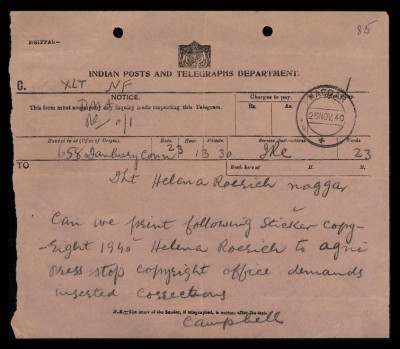 85
DIGITAL—
INDIAN POSTS AND TELEGRAPHS DEPARTMENT.
G. XLT NF
NOTICE.
Charges to pay.
This form must accompany any inquiry made respecting this Telegram.
NAGGAR
25 NOV. 40
Handed in at (Office of Origin). Date. Hour. Minute. Service Instructions. Words.
658 Danbury Conn 23 13 30 23
TO
Recd. here at H. M.
Helena Roerich naggar
Can we print following Sticker copy-
-right 1940 Helena Roerich to agni
press stop copyright office demands
inserted corrections
N.B.—The name of the Sender, if telegraphed, is written after the text.
Campbell